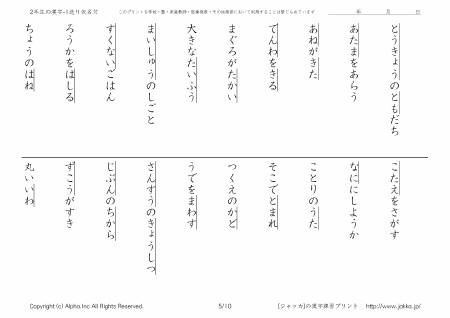 2年生の漢字+送り仮名付
このプリントを学校・塾・家庭教師・教材複製・その他商用において利用することは禁じられています
年 月 日
とうきょうのともだち
あたまをあらう
あねがきた
でんわをきる
まぐろがたかい
大きなたいふう
まいしゅうのしごと
すくないごはん
ろうかをはしる
ちょうのはね
こたえをさがす
なににしようか
ことりのうた
そこでとまれ
つくえのかど
うでをまわす
さんすうのきょうしつ
じぶんのちから
ずこうがすき
丸いいわ
Copyright (c) Alpha.Inc All Rights Reserved.
5/10
[ジャッカ]の漢字練習プリント http://www.jakka.jp/